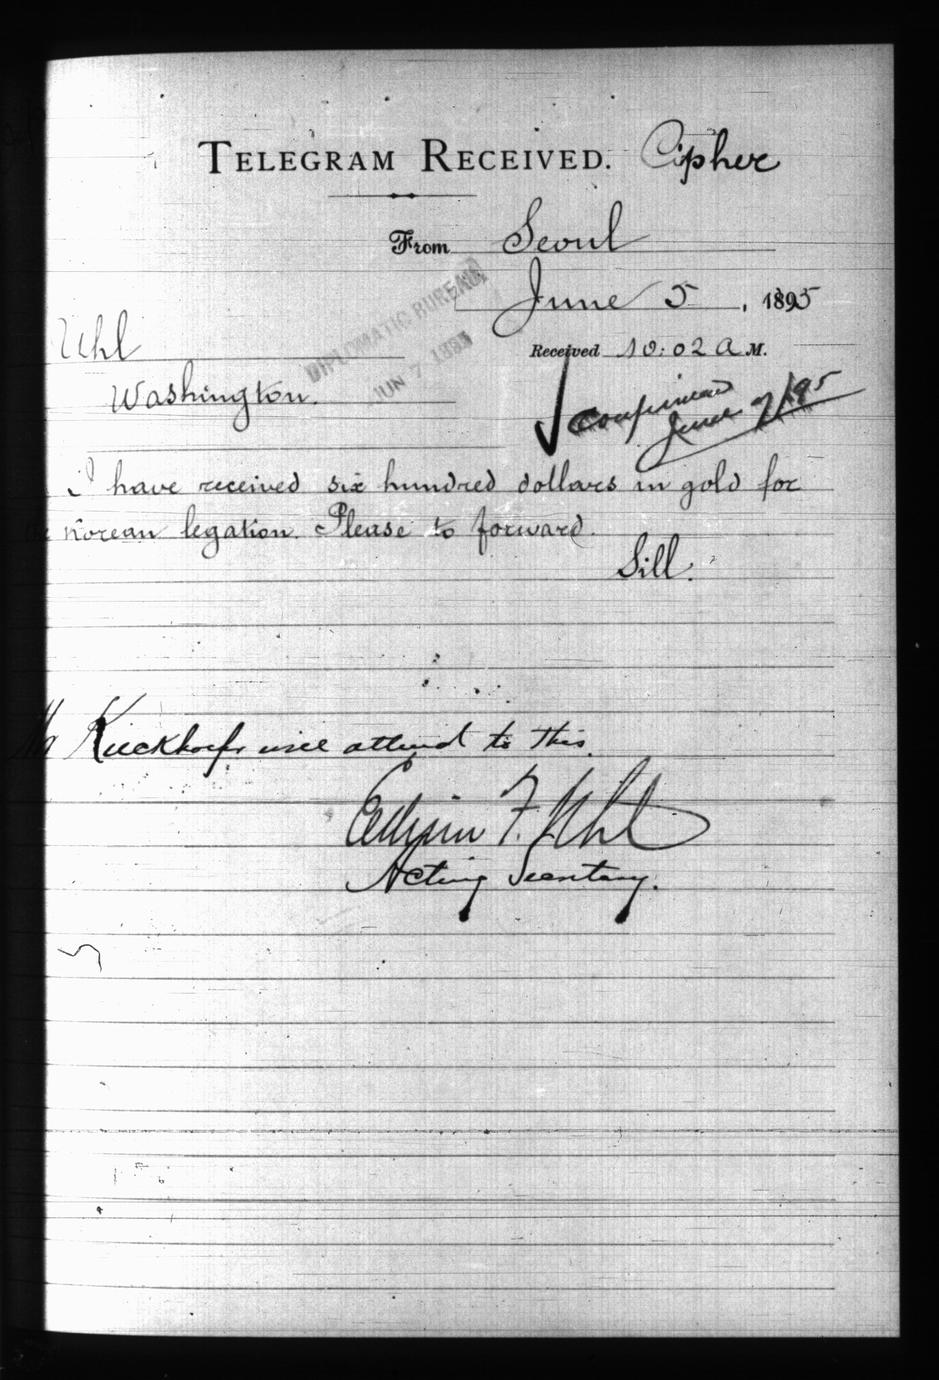 TELEGRAM RECEIVED. Cipher
From Seoul
June 5, 1895
Received 10:02 A.M.
DIPLOMATIC BUREAU
JUN 7 1895
Uhl
Washington.
Confirmed
June 7/95
I have received six hundred dollars in gold for
the Korean legation. Please to forward.
Sill.
Mr Kieckhoefer will attend to this.
Edwin F. Uhl
Acting Secretary.